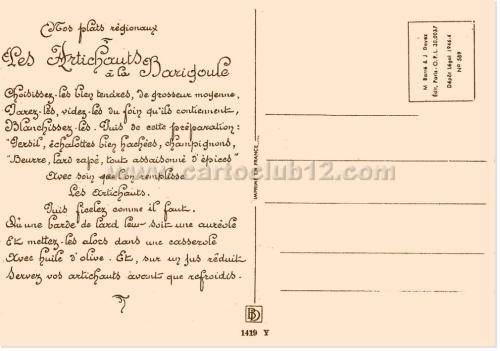 Nos plats régionaux
Les Artichauts
à la Barigoule
Choisissez-les bien tendres, de grosseur moyenne,
Parez-les, videz-les du foin qu'ils contiennent,
Blanchissez-les. Puis de cette préparation:
"Persil, échalottes bien hachées, champignons,
"Beurre, lard rapé, tout assaisonné d'épices"
Avec soin que l'on remplisse
Les Artichauts.
Puis ficelez comme il faut.
Qu'une barde de lard leur soit une auréole
Et mettez-les alors dans une casserole
Avec huile d'olive. Et, sur un jus réduit
Servez vos artichauts avant que refroidis.
www.cartoclub12.com
IMPRIMÉ EN FRANCE
M. Barré & J. Dayez
Édit. Paris - O.P.L. 30.0037
Dépôt Légal 1946-4
No 589
BD
1419 Y